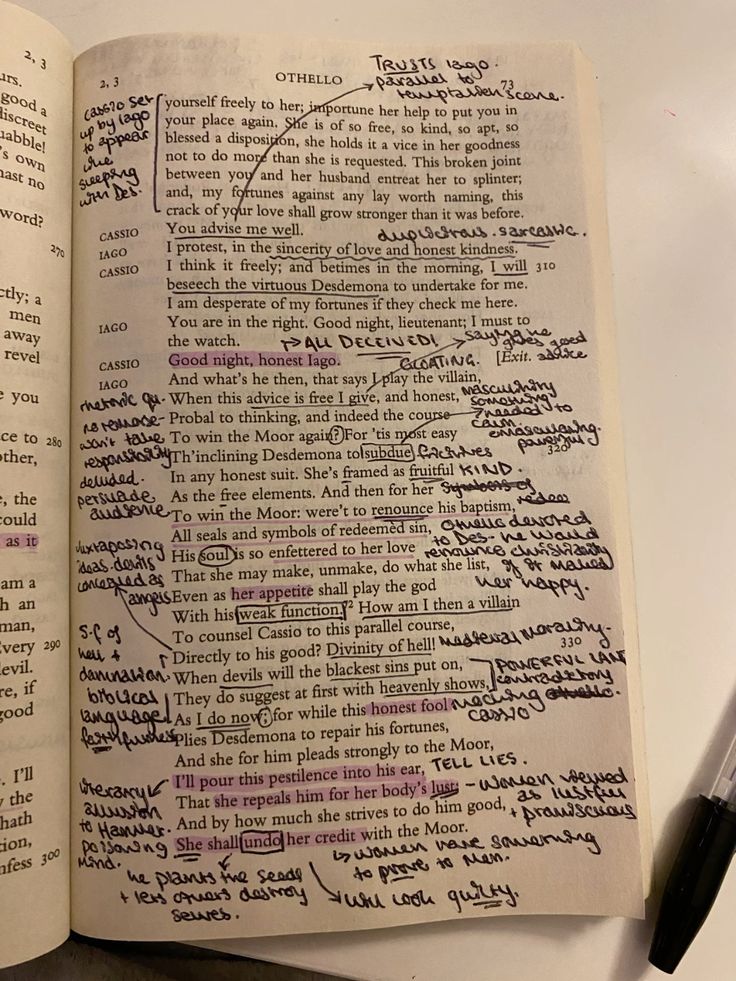 2, 3
urs.
good a
discreet
uabble!
's own
hast no
word?
270
ctly; a
men
away
revel
e you
ce to 280
other,
e, the
could
as it
am a
h an
man,
Every 290
devil.
re, if
good
. I'll
y the
hath
tion,
nfess 300
2, 3
OTHELLO
73
TRUSTS Iago.
parallel to
temptation scene.
cassio set
up by Iago
to appear
like
sleeping
with Des.
yourself freely to her; importune her help to put you in
your place again. She is of so free, so kind, so apt, so
blessed a disposition, she holds it a vice in her goodness
not to do more than she is requested. This broken joint
between you and her husband entreat her to splinter;
and, my fortunes against any lay worth naming, this
crack of your love shall grow stronger than it was before.
CASSIO You advise me well.
duplicitous. sarcastic.
IAGO I protest, in the sincerity of love and honest kindness.
CASSIO I think it freely; and betimes in the morning, I will 310
beseech the virtuous Desdemona to undertake for me.
I am desperate of my fortunes if they check me here.
IAGO You are in the right. Good night, lieutenant; I must to
the watch.
ALL DECEIVED!
saying he
gives good
advice
CASSIO Good night, honest Iago. [Exit.
GLOATING.
IAGO And what's he then, that says I play the villain,
When this advice is free I give, and honest,
Probal to thinking, and indeed the course
To win the Moor again? For 'tis most easy
Th'inclining Desdemona to subdue 320
In any honest suit. She's framed as fruitful
KIND.
As the free elements. And then for her
To win the Moor: were't to renounce his baptism,
All seals and symbols of redeemed sin,
His soul is so enfettered to her love
That she may make, unmake, do what she list,
Even as her appetite shall play the god
With his weak function.² How am I then a villain
To counsel Cassio to this parallel course,
Directly to his good? Divinity of hell! 330
When devils will the blackest sins put on,
They do suggest at first with heavenly shows,
As I do now; for while this honest fool
Plies Desdemona to repair his fortunes,
And she for him pleads strongly to the Moor,
I'll pour this pestilence into his ear,
TELL LIES.
That she repeals him for her body's lust;
And by how much she strives to do him good,
She shall undo her credit with the Moor.
rhetoric qu-
no response-
won't take
responsibility
deluded.
persuade
audience
masculinity
something
needed to
calm
emasculating.
powerful
Othello devoted
to Des- he would
renounce christianity
if it maked
her happy.
juxtaposing
ideas-devils
concealed as
angels
S.f of
hell +
damnation.
biblical
language
medieval morality.
POWERFUL
contradictory
cassio
literary
allusion
to Hamlet.
poisoning
mind.
- women viewed
as lustful
+ promiscuous
women have something
to prove to men.
he plants the seeds
+ lets others destroy
will look guilty.